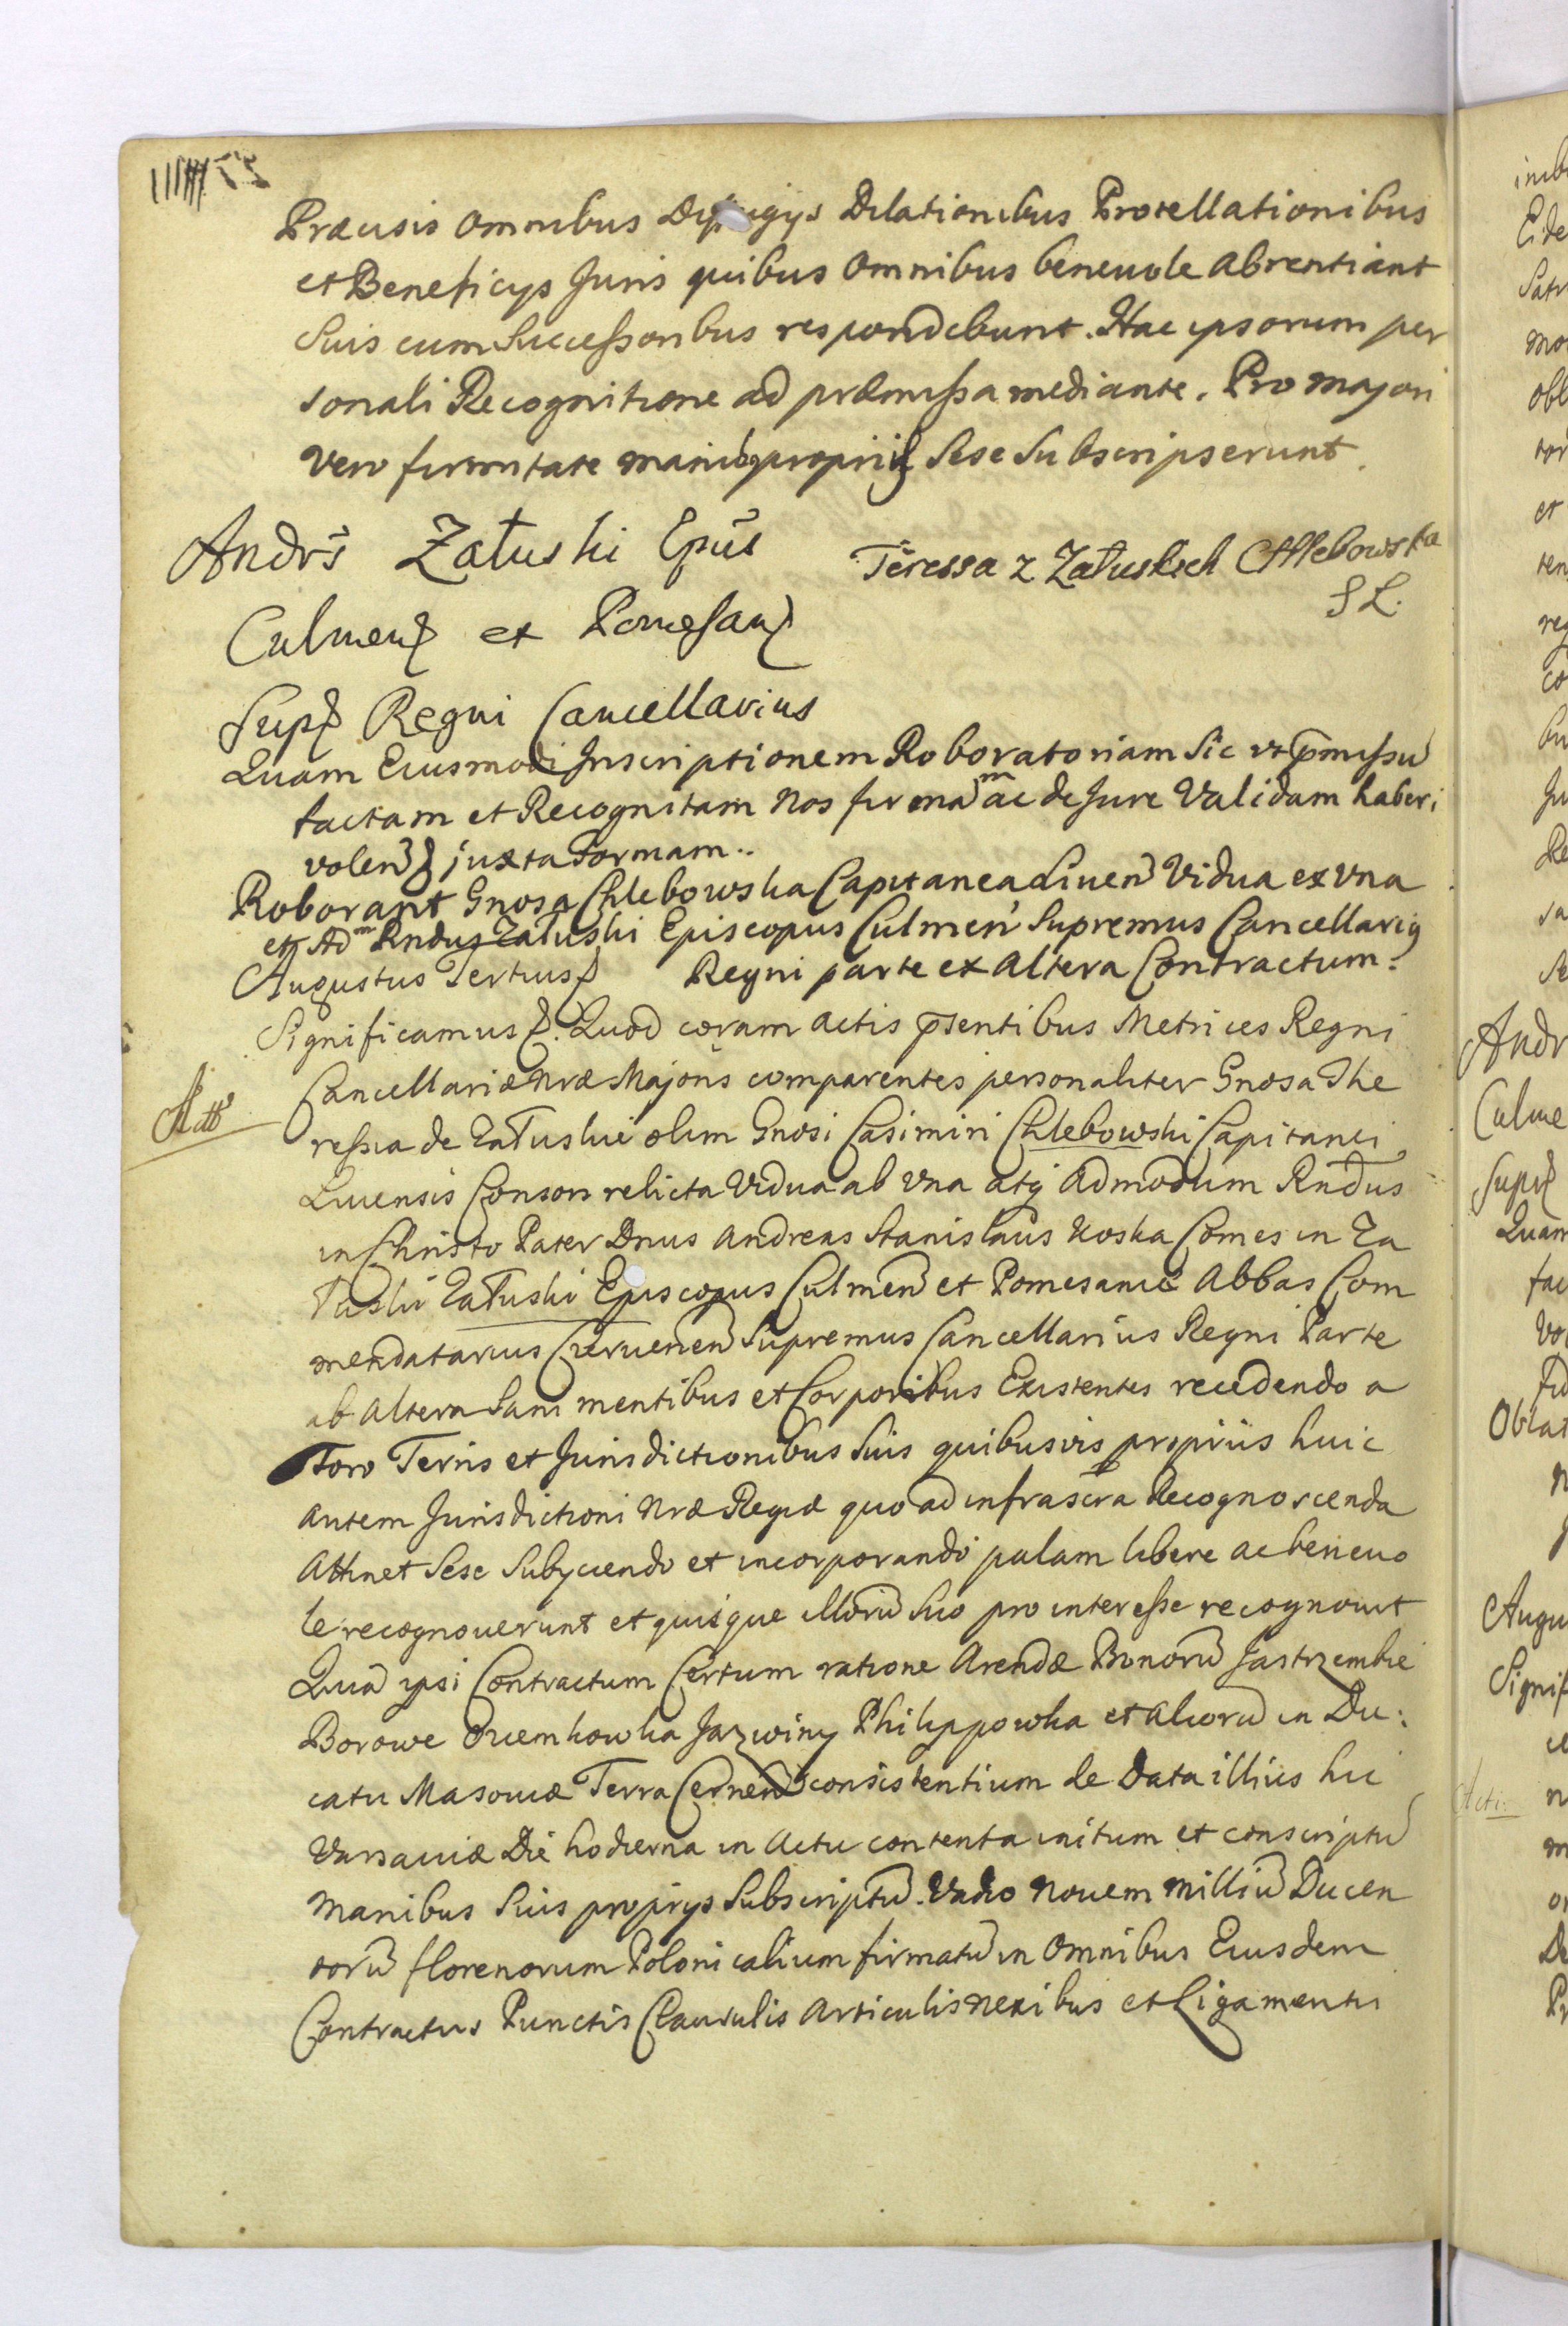 Præcisis Omnibus Diffugijs Dilationibus Protellationibus
et Beneficys Juris quibus Omnibus beneuole Abrentiant
Suis cum Successoribus respondebunt. Hac ipsorum per
sonali Recognitione ad præmissa mediante. Pro majori
vero firmitate manibq propriis Sese Subscripserunt.
Andrs Załuski Epus
Teressa z Załuskich Chlebowska
S L.
Culmens et Pomesans
Supr Regni Cancellarius
Quam Eiusmodi Inscriptionem Roboratoriam Sic vt pmissu
factam et Recognitam Nos firmam ac de Jure Validam haberi
volens juxta Formam..
Roborant Gnosa Chlebowska Capitanea Liuen Vidua ex vna
et Adm Rndus Załuski Episcopus Culmen Supremus Cancellarig
Augustus Tertius
Regni parte ex Altera Contractum.
Significamus. Quod coram actis psentibus Metrices Regni
Cancellariæ Nræ Majoris comparentes personaliter Gnosa The
ressia de Załuskie olim Gnosi Casimiri Chlebowski Capitanei
Liuensis Consors relicta Vidua ab Vna atq Admodum Rndus
in Christo Pater Dnus Andreas Stanislaus Koska Comes in Za
łuski Załuski Episcopus Culmen et Pomesaniæ Abbas Com
mendatarius Czeruenen Supremus Cancellarius Regni Parte
ab Altera Sani mentibus et Corporibus Existentes recedendo a
Foro Terris et Jurisdictionibus Suis quibusvis propriis huic
autem Jurisdictioni Nræ Regiæ quo ad infrascra Recognoscenda
Attinet Sese Subyciendo et incorporando palam libere ac beneuo
le recognouerunt et quisque illoru Suo pro interesse recognouit
Quia ipsi Contractum Certum ratione Arendæ Bonoru Jastrzembie
Borowe Jazwiny Philippowka et alioru in Du:
catu Masouiæ Terra Cernen consistentium de Data illius hic
Varsauiæ Die hodierna in Actu contenta initum et conscriptu
Manibus Suis proprys Subscriptu. Vadio Nouem Milliu Ducen
toru florenorum Polonicalium firmatu in Omnibus Eiusdem
Contractus Punctis Clausulis Articulis Nexibus et Ligamentis